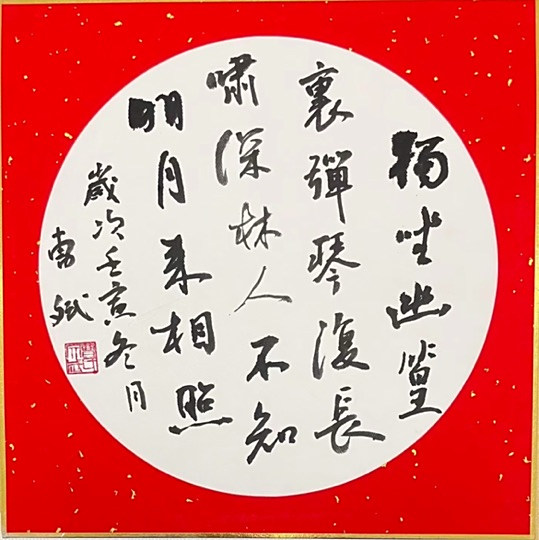 獨坐幽篁
裏彈琴復長
嘯深林人不知
明月来相照
歲次壬寅冬月